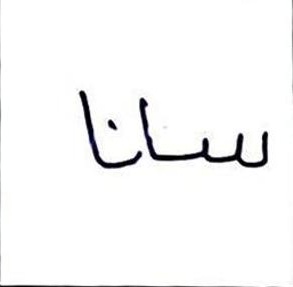 سانا